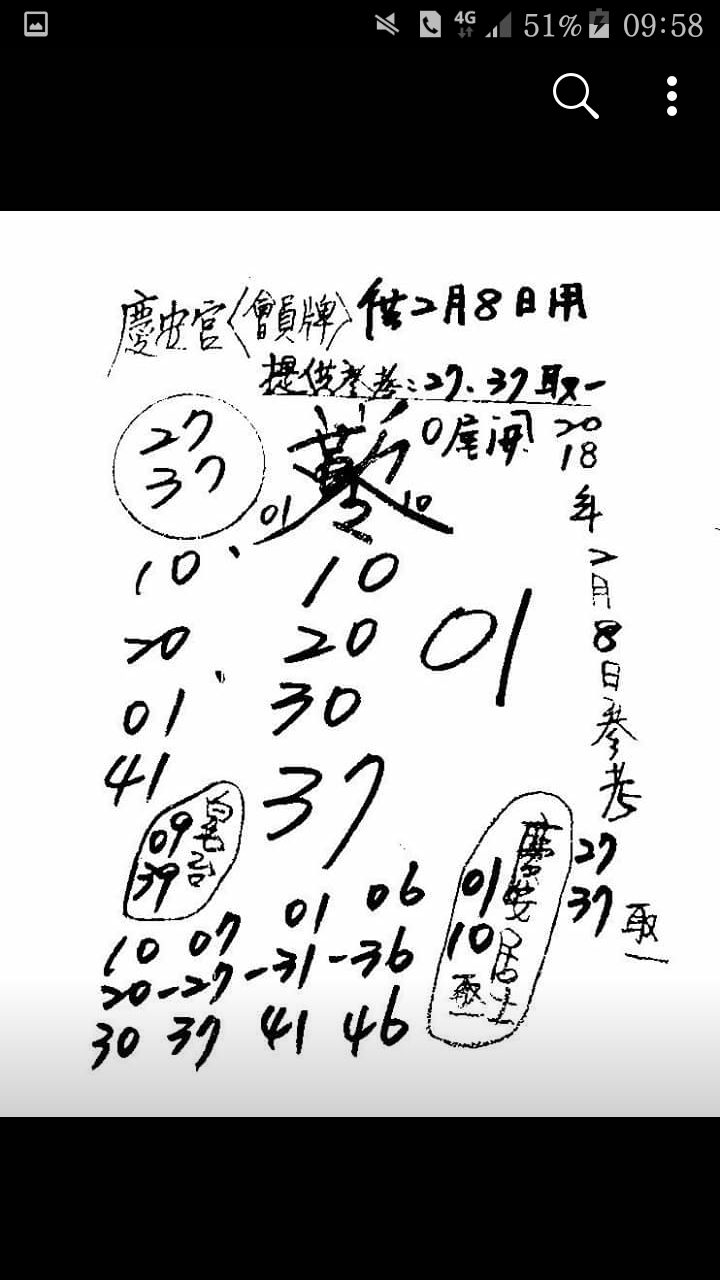 4G 51% 09:58
慶安宮〈會員牌〉供2月8日用
提供參考:27.37取一
27
37
0尾開
2018年2月8日參考
01 10
10 10
20 20 01
01 30
41 37
09
39
27
37 取一
慶安居士
01
10
取一
10 07 01 06
20-27-31-36
30 37 41 46